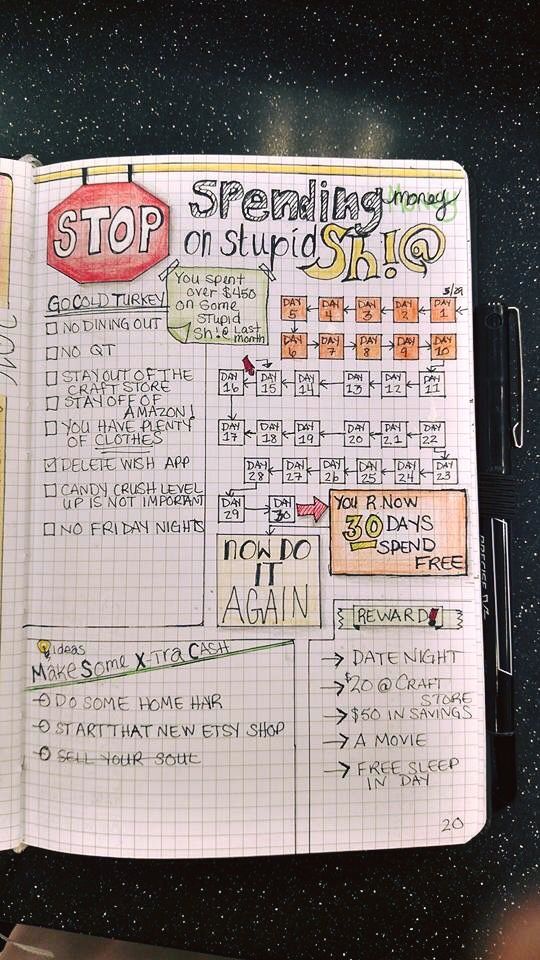 STOP
Spending Money
on stupid Sh!@
You spent
over $450
on some
stupid
Sh!@ Last
month
GO COLD TURKEY
NO DINING OUT
NO QT
STAY OUT OF THE
CRAFT STORE
STAY OFF OF
AMAZON!
YOU HAVE PLENTY
OF CLOTHES
DELETE WISH APP
CANDY CRUSH LEVEL
UP IS NOT IMPORTANT
NO FRIDAY NIGHTS
3/29
DAY 5 DAY 4 DAY 3 DAY 2 DAY 1
DAY 6 DAY 7 DAY 8 DAY 9 DAY 10
DAY 16 DAY 15 DAY 14 DAY 13 DAY 12 DAY 11
DAY 17 DAY 18 DAY 19 DAY 20 DAY 21 DAY 22
DAY 28 DAY 27 DAY 26 DAY 25 DAY 24 DAY 23
DAY 29 DAY 30
YOU R NOW
30 DAYS
SPEND
FREE
NOW DO
IT
AGAIN
REWARD!
DATE NIGHT
$20 @ CRAFT
STORE
$50 IN SAVINGS
A MOVIE
FREE SLEEP
IN DAY
Ideas
Make Some X-tra Cash
DO SOME HOME HAR
START THAT NEW ETSY SHOP
SELL YOUR SOUL
20